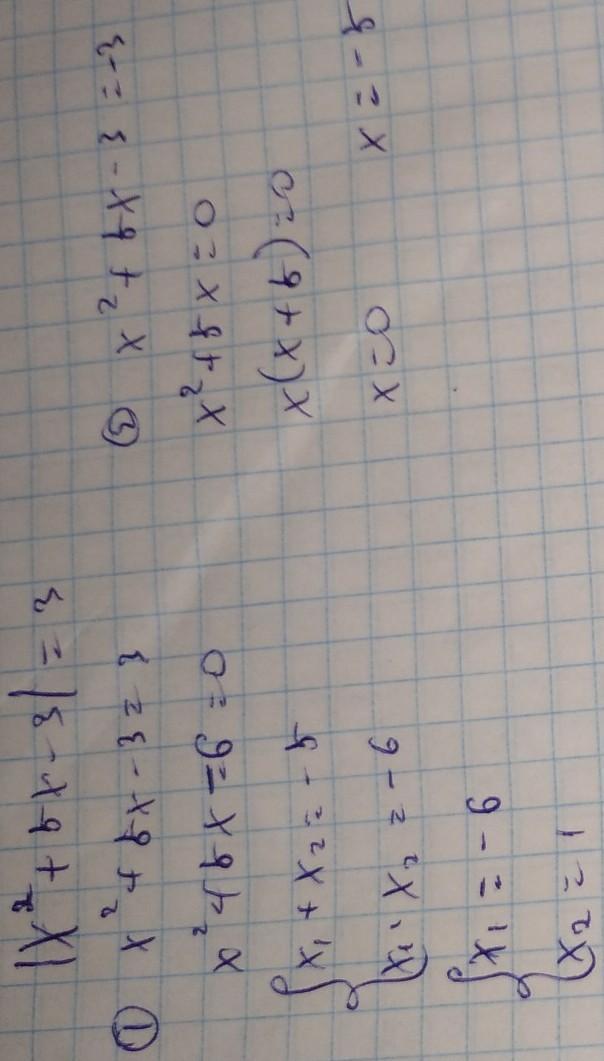 |x² + 5x - 3| = 3
① x² + 5x - 3 = 3
x² + 5x - 6 = 0
{ x₁ + x₂ = -5
x₁ · x₂ = -6
{ x₁ = -6
x₂ = 1
② x² + 5x - 3 = -3
x² + 5x = 0
x(x + 5) = 0
x = 0 x = -5